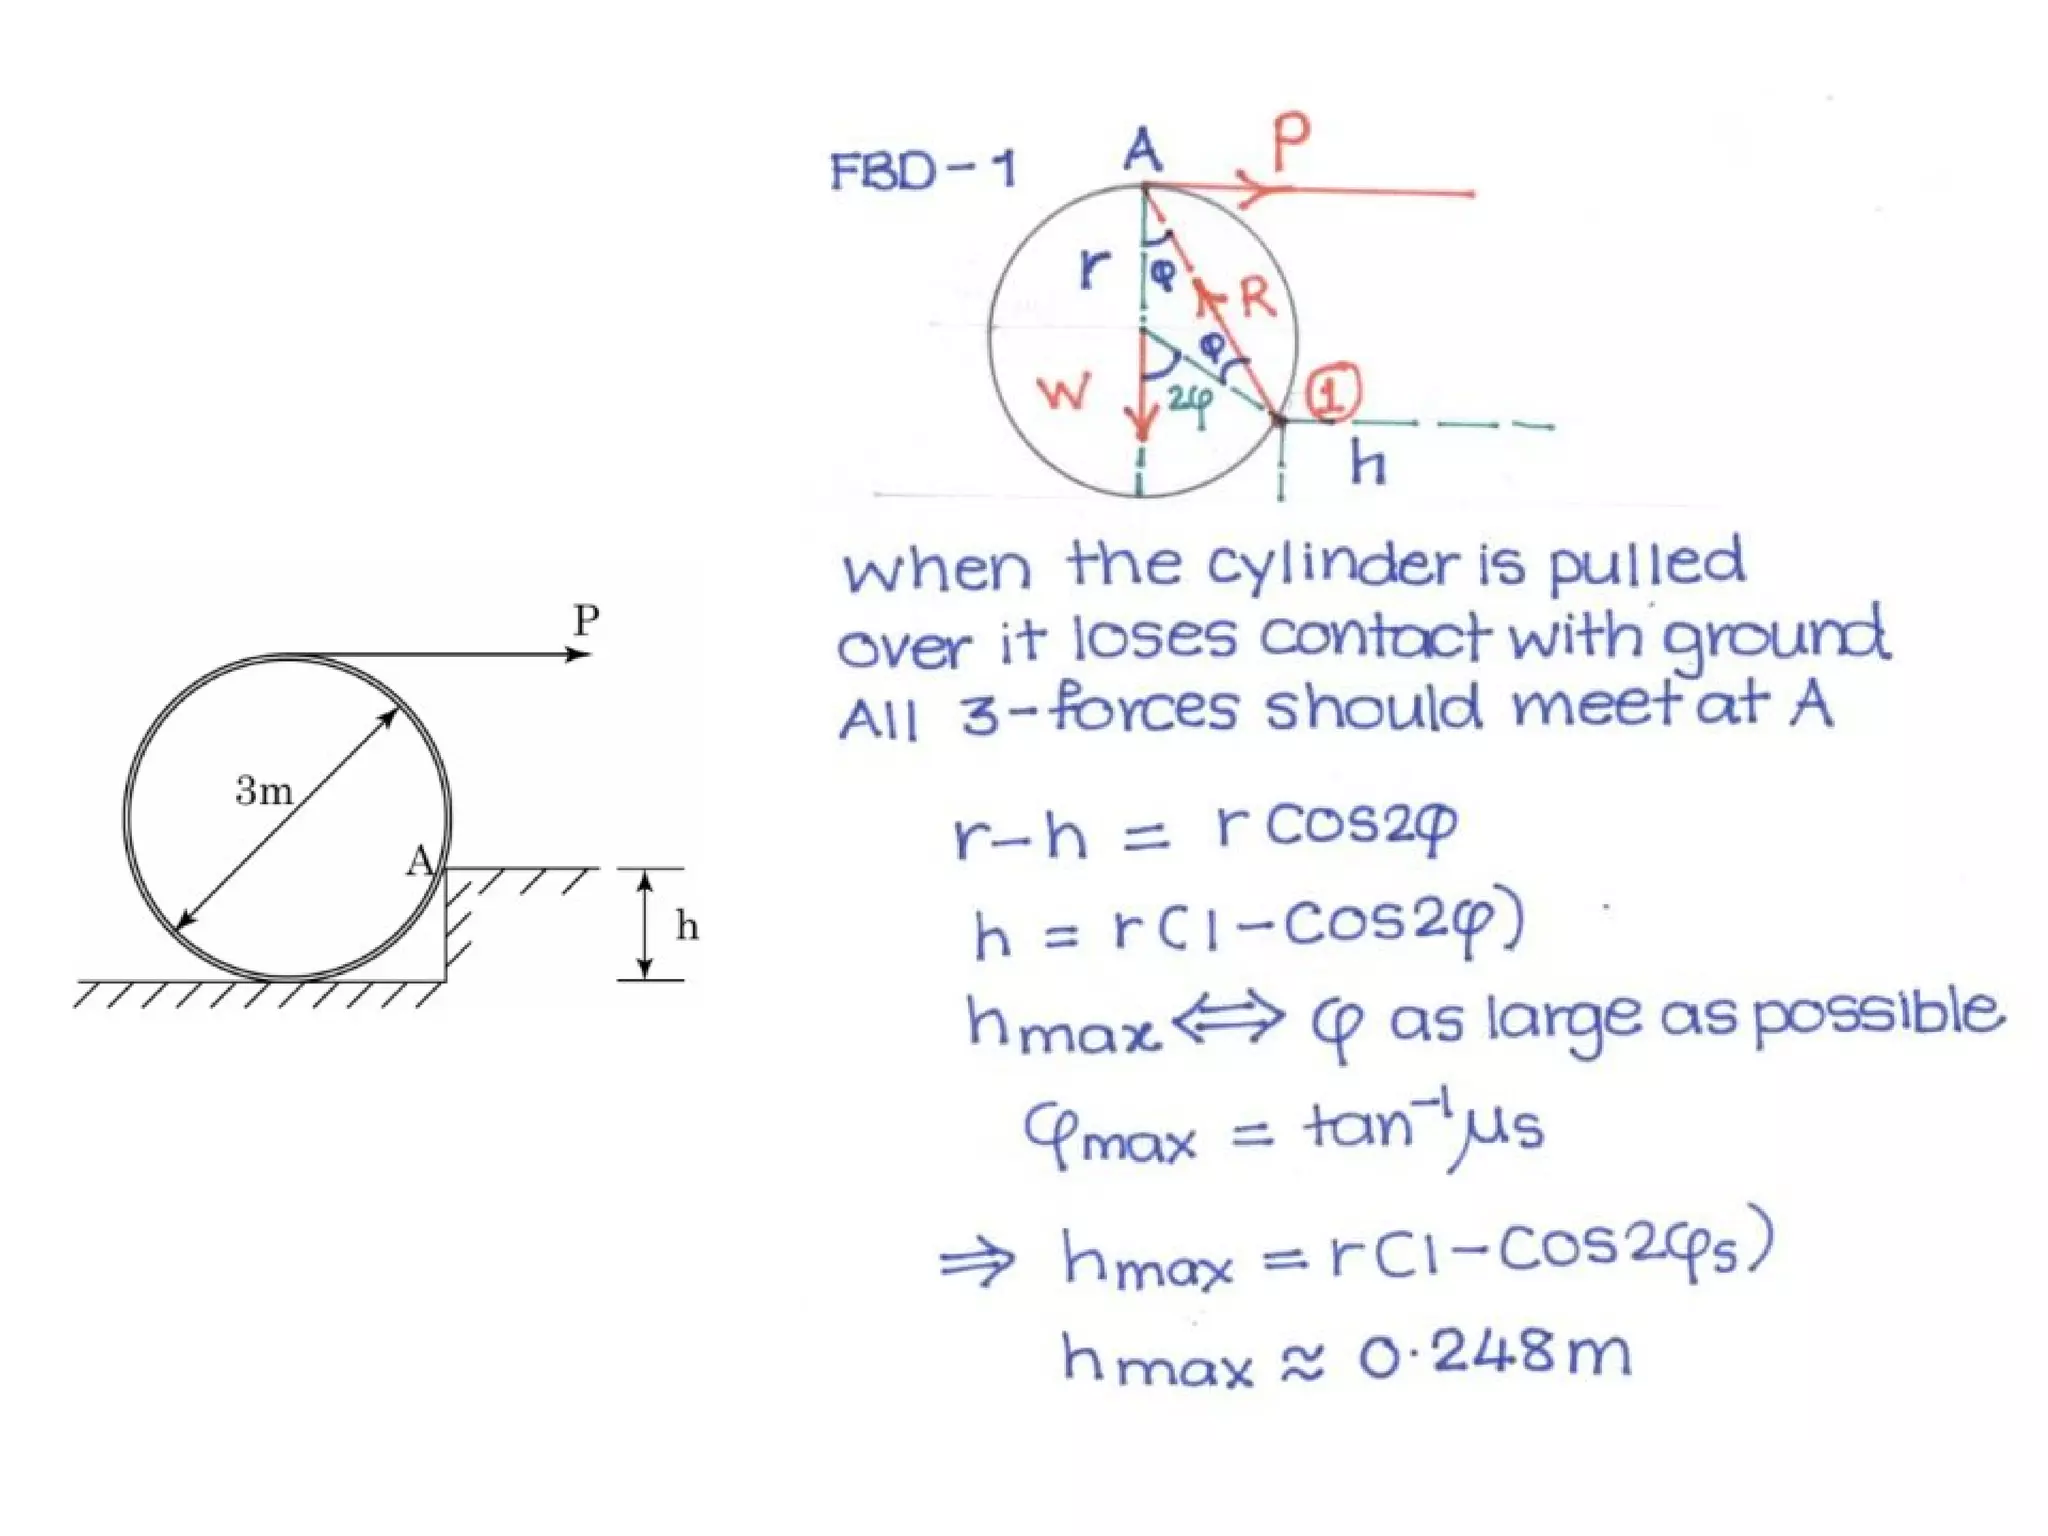 P
3m
A
h
FBD-1
A
P
r
φ
R
φ
W
2φ
1
h
When the cylinder is pulled
over it loses contact with ground
All 3-forces should meet at A
r-h = r cos2φ
h = r(1-cos2φ)
hmax ⇔ φ as large as possible
φmax = tan⁻¹μs
⇒ hmax = r(1-cos2φs)
hmax ≈ 0.248m